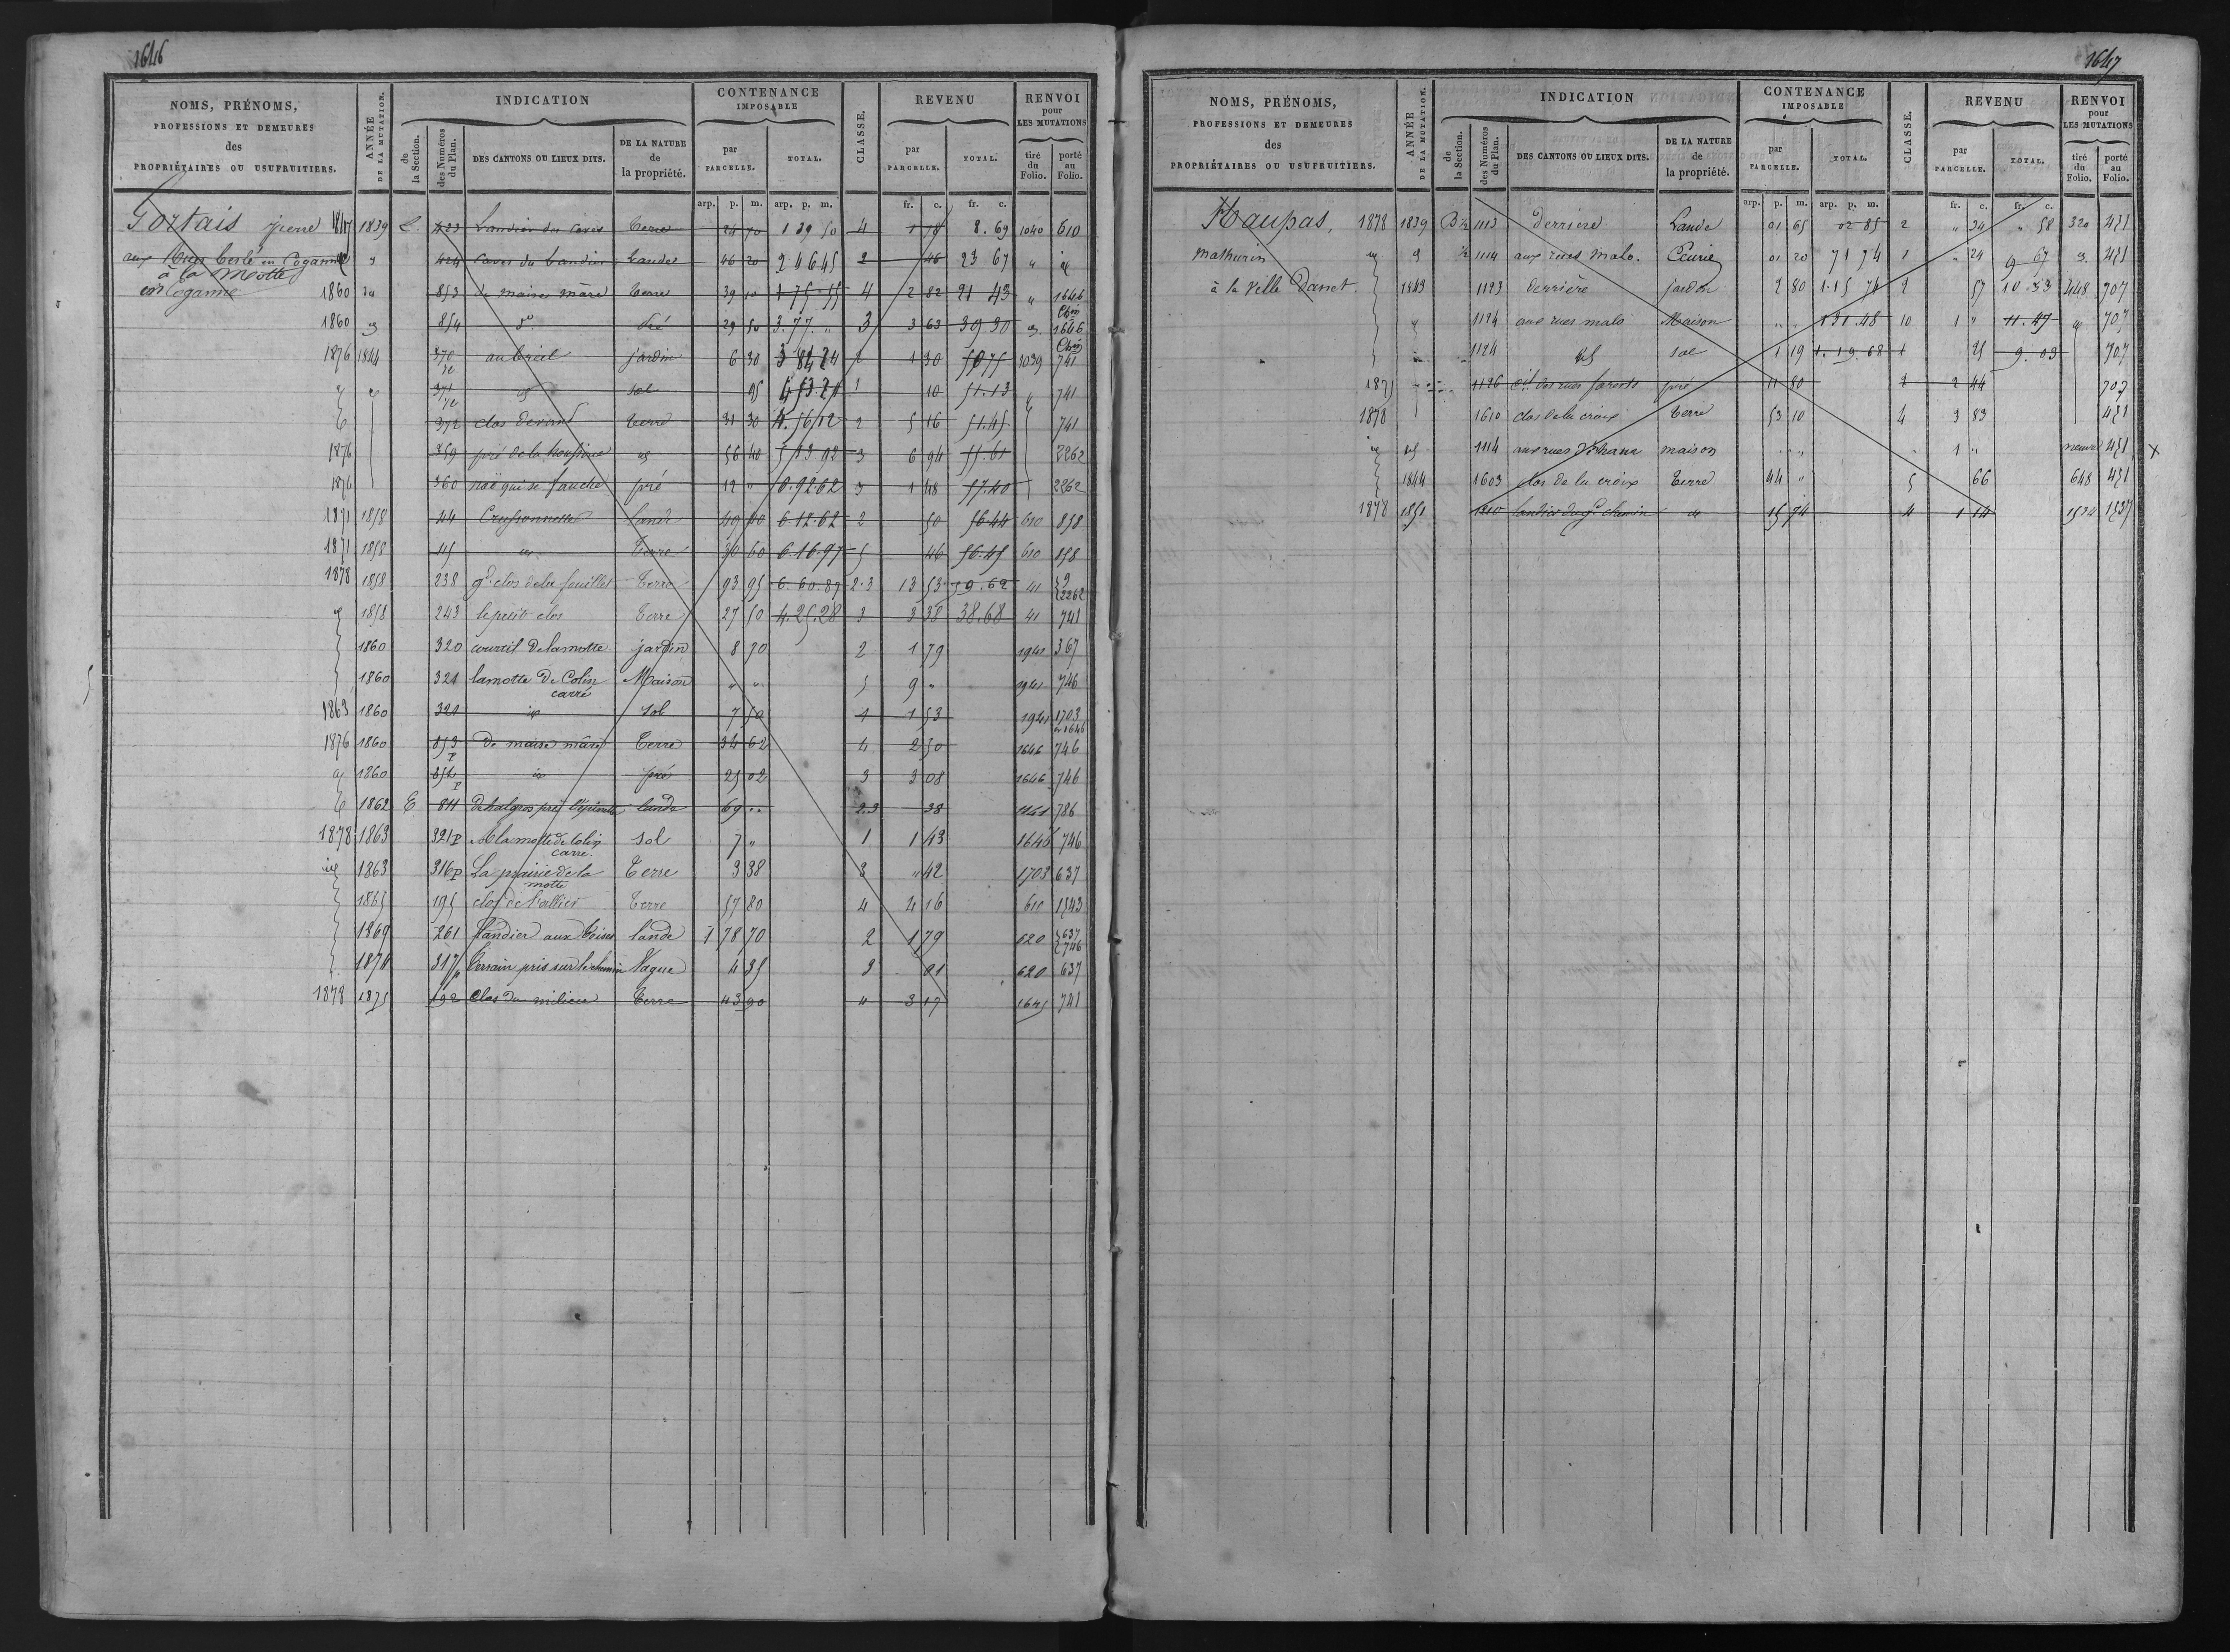 1646
NOMS, PRÉNOMS, PROFESSIONS ET DEMEURES des PROPRIÉTAIRES OU USUFRUITIERS.
ANNÉE DE LA MUTATION.
INDICATION
de la Section.
des Numéros du Plan.
DES CANTONS OU LIEUX DITS.
DE LA NATURE de la propriété.
CONTENANCE IMPOSABLE
par PARCELLE.
TOTAL.
CLASSE.
REVENU
par PARCELLE.
TOTAL.
RENVOI pour LES MUTATIONS
tiré du Folio.
porté au Folio.
arp. p. m. arp. p. m. fr. c. fr. c.
Gortais pierre 1839 423 Landier du Terre 24 70 1 29 50 4 1 78 8.69 1040 610
aux 424 Landier Lande 46 20 2 46 45 2 46 23 67 "
à la Motte
en Coganne 1860 853 de maise mâre terre 39 10 1 75 55 4 2 82 21 43 " 1646
1860 854 do Pré 29 50 3.77 " 3 3 63 39.30 1646
1876 1844 370 jardin 6 30 2 1 30 1039 741
371 sol 95 1 10 51.13 " 741
372 clos devant terre 31 30 2 5 16 51.45 741
1876 359 pré de la 56 40 3 6 94 2262
1876 360 qui se fauche pré 12 " 3 1 48 57.40 2262
1871 1858 44 lande 49 40 6.12.62 2 50 56.44 610 858
1871 1858 45 Terre 30 60 6.16.97 5 46 56.45 610 858
1878 1858 238 gd. clos de la feuillet Terre 93 95 6.60.89 2.3 13 53 59.62 41 9 2262
1858 243 le petit clos Terre 27 50 4.25.28 3 3 38 38.68 41 741
1860 320 courtil de lamotte jardin 8 70 2 1 79 1941 367
1860 321 lamotte de Colin carré Maison " " 5 9 " 1941 746
1863 1860 321 Sol 7 50 1 1 53 1941 1703 1646
1876 1860 853 P de maise mâre Terre 34 62 4 2 50 1646 746
1860 854 P pré 25 02 3 3 08 1646 746
1862 E 811 lande 69 " 2.3 38 786
1878 1863 321 P A lamotte de Colin carré. sol 7 " 1 1 43 1646 746
1863 316 P La prairie de la motte Terre 3 38 3 " 42 1703 637
1865 195 clos de l'allier Terre 57 80 4 4 16 610 1543
1869 261 landier aux lande 1 78 70 2 1 79 620 637 746
1870 317 terrain pris sur le chemin Vague 4 35 3 01 620 637
1878 1875 192 Clos du milieu Terre 43 90 4 3 17 1645 741
1647
NOMS, PRÉNOMS, PROFESSIONS ET DEMEURES des PROPRIÉTAIRES OU USUFRUITIERS.
ANNÉE DE LA MUTATION.
INDICATION
de la Section.
des Numéros du Plan.
DES CANTONS OU LIEUX DITS.
DE LA NATURE de la propriété.
CONTENANCE IMPOSABLE
par PARCELLE.
TOTAL.
CLASSE.
REVENU
par PARCELLE.
TOTAL.
RENVOI pour LES MUTATIONS
tiré du Folio.
porté au Folio.
arp. p. m. arp. p. m. fr. c. fr. c.
Haupas, 1878 1839 1113 derrière Lande 01 65 02 85 2 " 34 " 58 320 451
mathurin 1114 aux rues malo. Ecurie 01 20 71 74 1 " 24 9 67 451
à la Ville Danet 1843 1123 derrière jardin 2 80 1.15 74 2 57 10.53 448 707
1124 aux rues malo Maison " " 1 31.48 10 1 " 11.47 707
1124 sol 1 19 1.19.68 1 25 9.03 707
1875 1126 pré 11 80 2 2 44 707
1878 1610 clos de la croix terre 53 10 4 3 83 451
1114 aux rues maison " " 1 " neuve 451 x
1844 1603 clos de la croix terre 44 " 5 66 648 451
1878 1851 landier du gd chemin 15 74 4 1 14 1524 1537